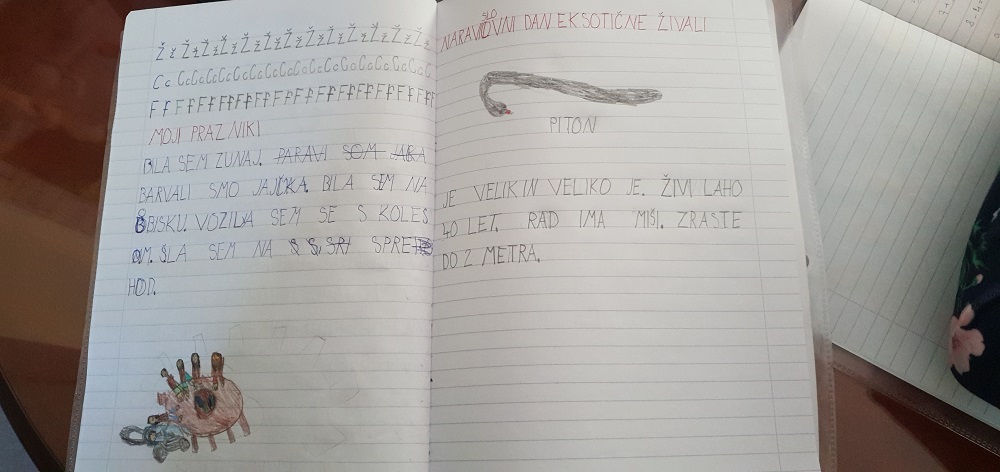 Ž ž Ž ž Ž ž Ž ž Ž ž Ž ž Ž ž Ž ž Ž ž Ž ž Ž ž Ž ž
C c C c C c C c C c C c C c C c C c C c C c C c C c C
F f F f F f F f F f F f F f F f F f F f F f F f F f F f
MOJI PRAZNIKI
BILA SEM ZUNAJ.
BARVALI SMO JAJČKA. BILA SEM NA
OBISKU. VOZILA SEM SE S KOLES
OM. ŠLA SEM NA SPRE
HOD.
NARAVOSLOVNI DAN EKSOTIČNE ŽIVALI
PITON
JE VELIK IN VELIKO JE. ŽIVI LAHO
40 LET. RAD IMA MIŠI. ZRASTE
DO 2 METRA.